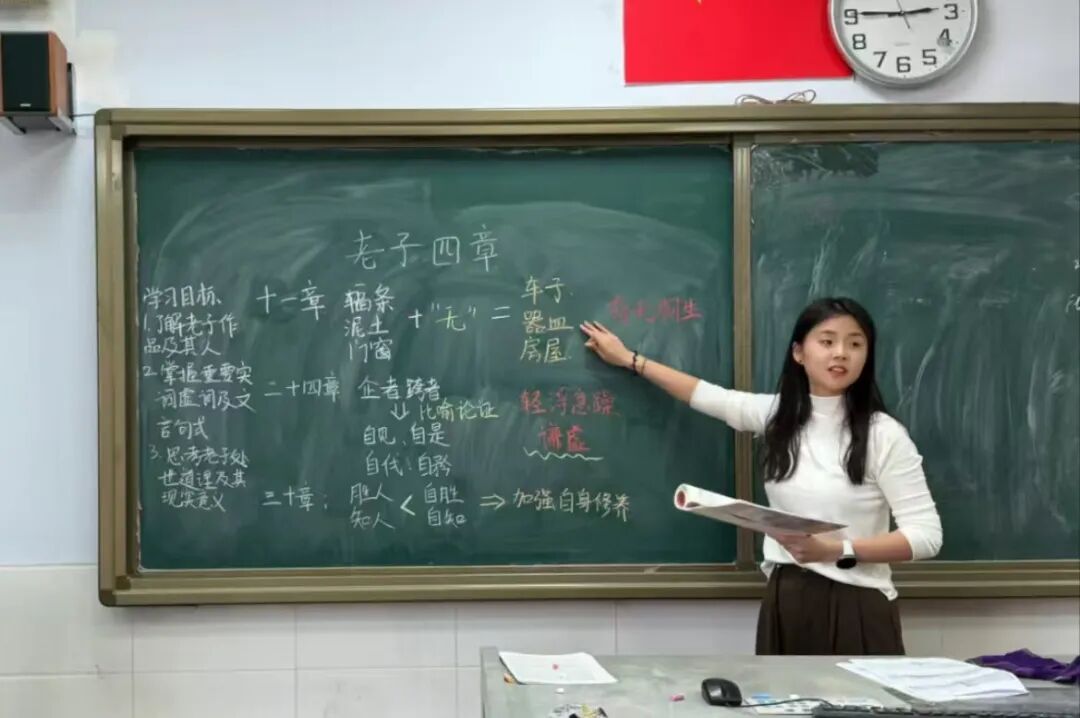 老子四章
学习目标
1.了解老子作
品及其人
2.掌握重要实
词虚词及文
言句式
3.思考老子处
世道理及其
现实意义
十一章 辐条 泥土 门窗 + "无" = 车子 器皿 房屋 有无相生
二十四章 企者 跨者
比喻论证
自见、自是
自伐、自矜
轻浮急躁
谦虚
三十章: 胜人 知人 < 自胜 自知 => 加强自身修养
9 8 7 6 5 4 3